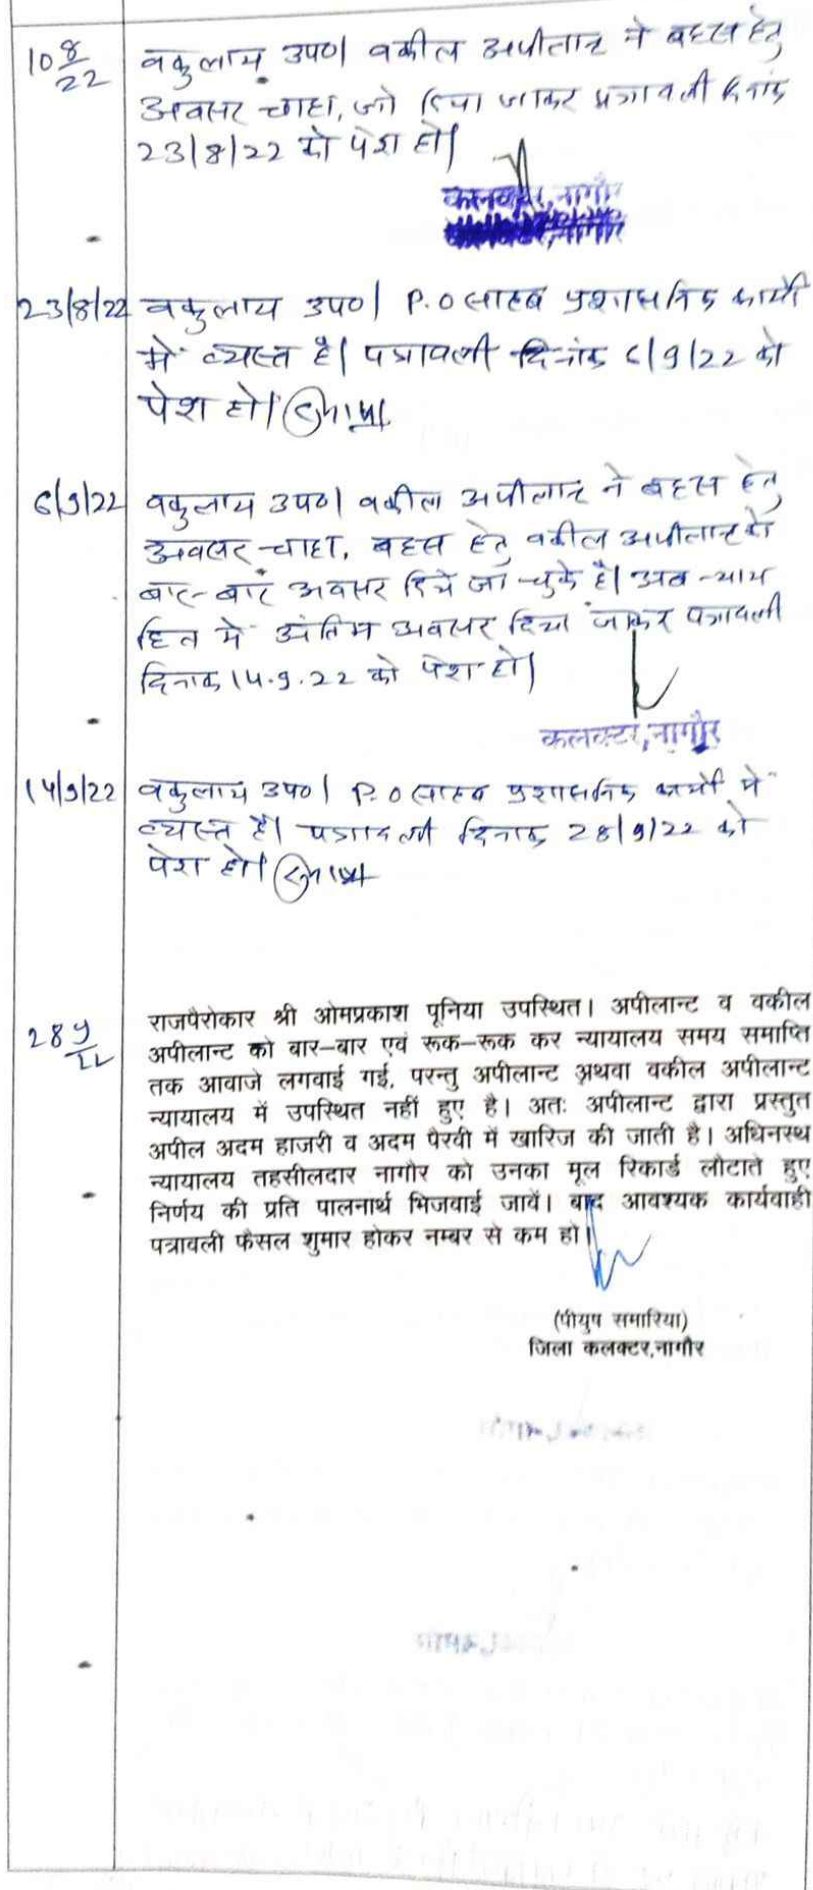 10 8/22 वकुलाय उप०। वकील अपीलान्ट ने बहस हेतु
अवसर चाहा, जो दिया जाकर पत्रावली दिनांक
23/8/22 को पेश हो।
कलक्टर, नागौर
23/8/22 वकुलाय उप०। P.O साहब प्रशासनिक कार्यो
में व्यस्त है। पत्रावली दिनांक 6/9/22 को
पेश हो।
6/9/22 वकुलाय उप०। वकील अपीलान्ट ने बहस हेतु
अवसर चाहा, बहस हेतु वकील अपीलान्ट को
बार-बार अवसर दिये जा चुके है। अब न्याय
हित में अंतिम अवसर दिया जाकर पत्रावली
दिनाक 14.9.22 को पेश हो।
कलक्टर, नागौर
14/9/22 वकुलाय उप०। P.O साहब प्रशासनिक कार्यो मे
व्यस्त है। पत्रावली दिनाक 28/9/22 को
पेश हो।
28 9/22 राजपैरोकार श्री ओमप्रकाश पूनिया उपस्थित। अपीलान्ट व वकील
अपीलान्ट को बार–बार एवं रूक–रूक कर न्यायालय समय समाप्ति
तक आवाजे लगवाई गई, परन्तु अपीलान्ट अथवा वकील अपीलान्ट
न्यायालय में उपस्थित नहीं हुए है। अतः अपीलान्ट द्वारा प्रस्तुत
अपील अदम हाजरी व अदम पैरवी में खारिज की जाती है। अधिनस्थ
न्यायालय तहसीलदार नागौर को उनका मूल रिकार्ड लौटाते हुए
निर्णय की प्रति पालनार्थ भिजवाई जावें। बाद आवश्यक कार्यवाही
पत्रावली फैसल शुमार होकर नम्बर से कम हो।
(पीयुष समारिया)
जिला कलक्टर,नागौर